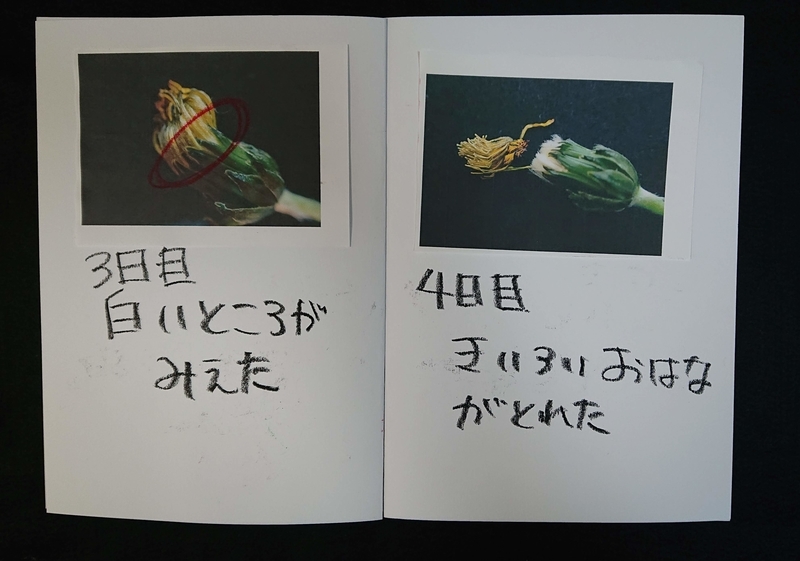 3日目
白いところが
みえた
4日目
きいろいおはな
がとれた